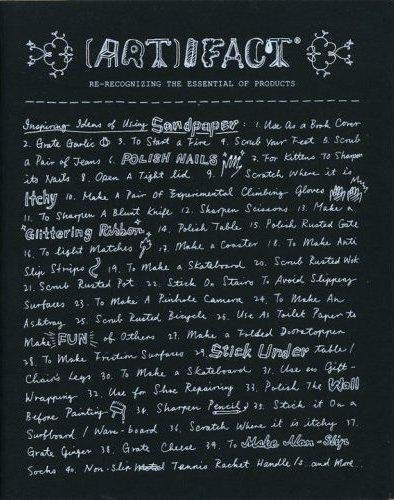 (ART)IFACT®
RE-RECOGNIZING THE ESSENTIAL OF PRODUCTS
Inspiring Ideas of Using Sandpaper: 1. Use As a Book Cover
2. Grate Garlic 3. To Start a Fire 4. Scrub Your Feet 5. Scrub
a Pair of Jeans 6. POLISH NAILS 7. For Kittens To Sharpen
its Nails 8. Open A Tight lid 9. Scratch Where it is
Itchy 10. Make A Pair Of Experimental Climbing Gloves
11. To Sharpen A Blunt Knife 12. Sharpen Scissors 13. Make a
Glittering Ribbon 14. Polish Table 15. Polish Rusted Gate
16. To light Matches 17. Make a Coaster 18. To Make Anti
Slip Stripes 19. To Make a Skateboard 20. Scrub Rusted Wok
21. Scrub Rusted Pot 22. Stick On Stairs To Avoid Slippery
Surfaces 23. To Make A Pinhole Camera 24. To Make An
Ashtray 25. Scrub Rusted Bicycle 26. Use As Toilet Paper to
Make FUN of Others 27. Make a Folded Doorstopper
28. To Make Friction Surfaces 29. Stick Under table/
Chair's Legs 30. To Make a Skateboard 31. Use as Gift-
Wrapping 32. Use for Shoe Repairing 33. Polish The Wall
Before Painting 34. Sharpen Pencil 35. Stick it On a
Surfboard / Wave-board 36. Scratch Where it is itchy 37.
Grate Ginger 38. Grate Cheese 39. To Make Non-Slip
Socks 40. Non-Slip Tennis Racket Handle/s and More...